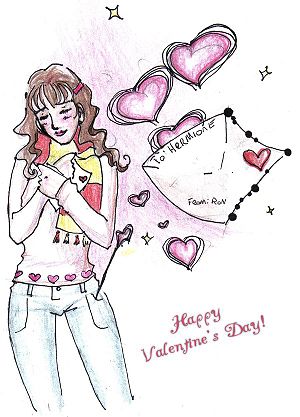 To HERMIONE
From: RON
Happy
Valentine's Day!